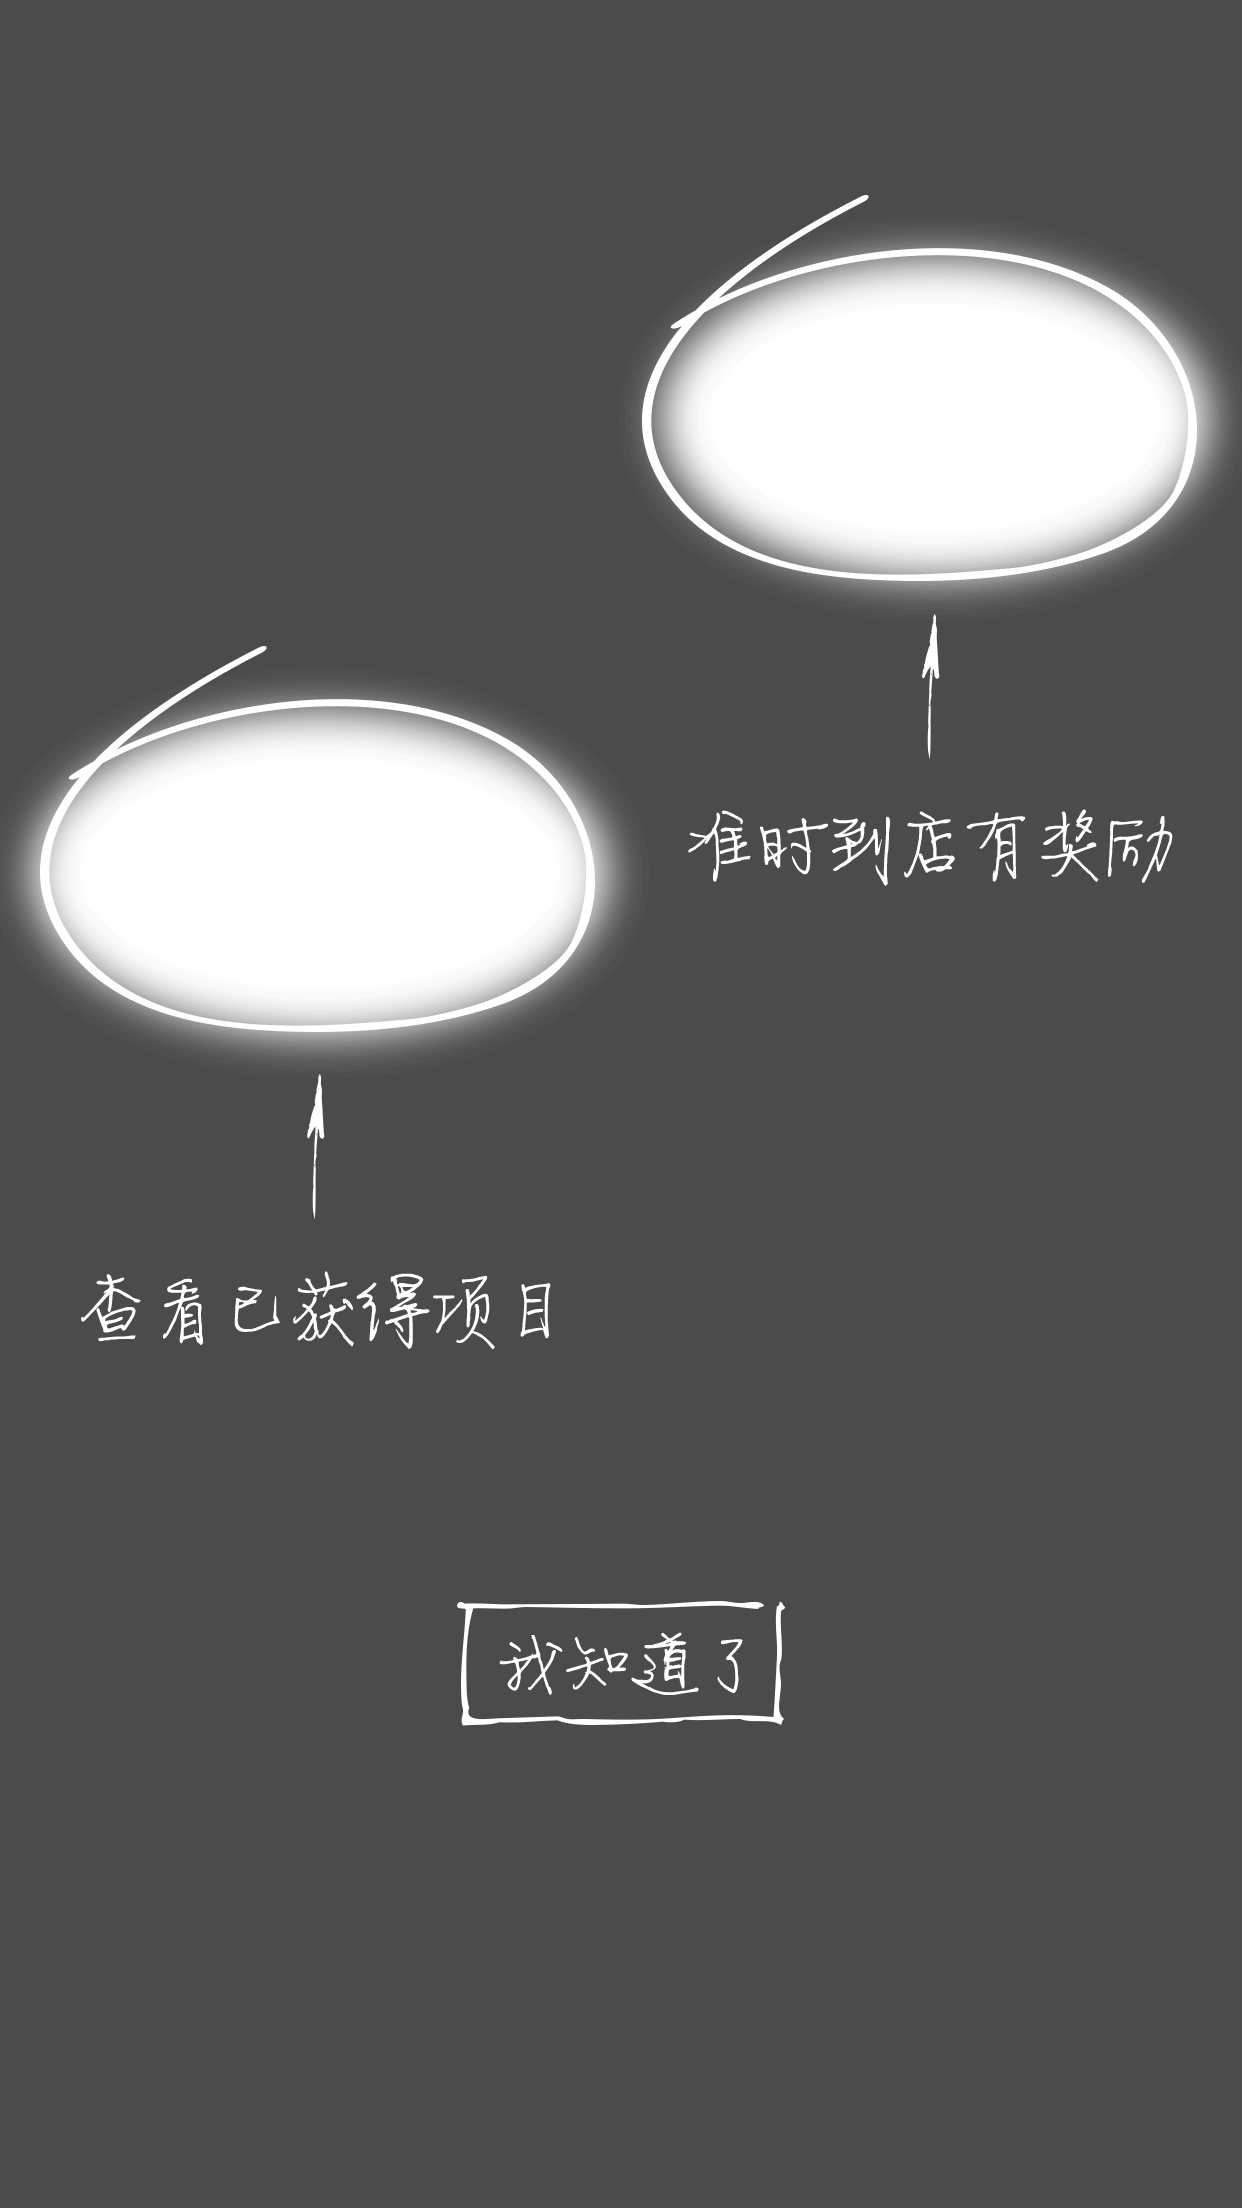 准时到店有奖励
查看已获得项目
我知道了